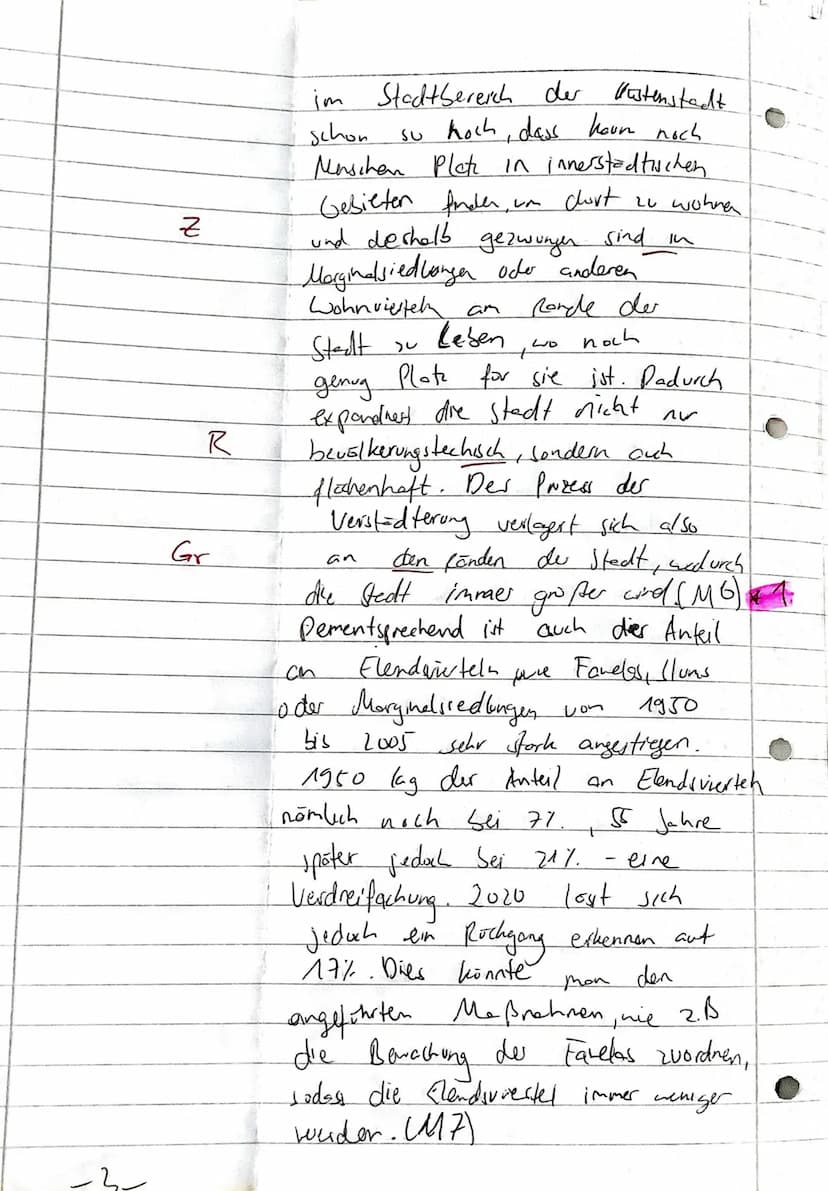 im Stadtbereich der Küstenstadt
schon so hoch, dass kaum noch
Menschen Platz in innerstädtischen
Gebieten finden, um dort zu wohnen
Z und deshalb gezwungen sind in
Marginalsiedlungen oder anderen
Wohnvierteln am Rande der
Stadt zu Leben, wo noch
genug Platz für sie ist. Dadurch
expandiert die Stadt nicht nur
R bevölkerungstechisch, sondern auch
flächenhaft. Der Prozess der
Verstädterung verlagert sich also
Gr an den Ränden der Stadt, wodurch
die Stadt immer größer wird (M6) * 1.
Dementsprechend ist auch der Anteil
an Elendvierteln wie Favelas, Sluns
oder Marginalsiedlungen von 1950
bis 2005 sehr stark angestiegen.
1950 lag der Anteil an Elendsvierteln
nämlich noch bei 7%., 55 Jahre
später jedoch bei 21%. - eine
Verdreifachung. 2020 lässt sich
jedoch ein Rückgang erkennen auf
17%. Dies könnte man den
angeführten Maßnahmen, wie z.B
die Bewachung der Favelas zuordnen,
sodass die Elendsviertel immer weniger
wurden. (M7)